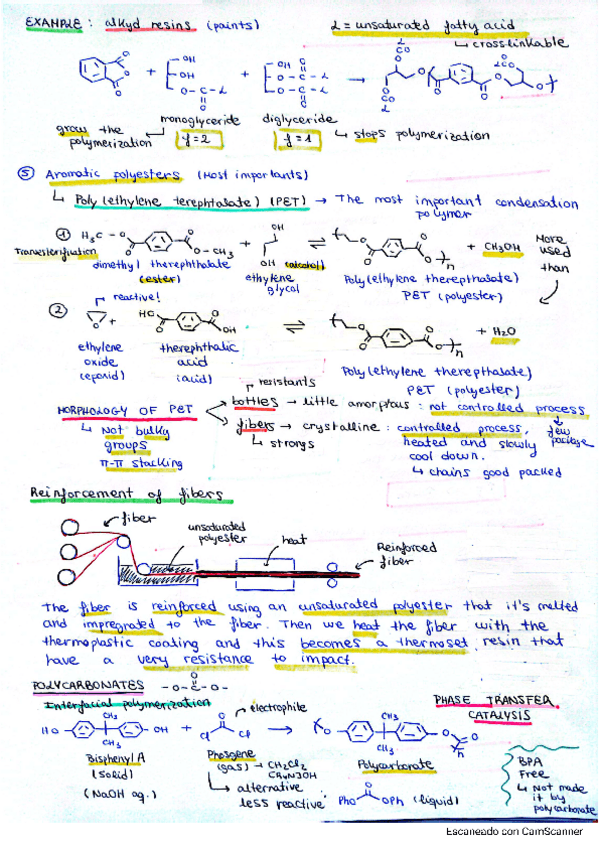 EXAMPLE: alkyd resins (paints)
L = unsaturated fatty acid
↳ crosslinkable
monoglyceride
diglyceride
grow the polymerization
f=2
f=1
↳ stops polymerization
⑤ Aromatic polyesters (Most importants)
↳ Poly(ethylene terephtalate) (PET) → The most important condensation
polymer
① H₃C-O
O-CH₃
OH
OH
+ CH₃OH
More
used
than
Transesterification
dimethyl therephthalate
(ester)
(alcohol)
ethylene
glycol
Poly(ethylene therephthalate)
PET (polyester)
reactive!
② HO
OH
+ H₂O
ethylene
oxide
(epoxid)
therephthalic
acid
(acid)
Poly(ethylene therephthalate)
PET (polyester)
MORPHOLOGY OF PET
↳ Not bulky
groups
π-π stacking
resistants
bottles → little amorphous: not controlled process
fibers → crystalline: controlled process,
heated and slowly
cool down.
↳ strongs
↳ chains good packed
Reinforcement of fibers
fiber
unsaturated
polyester
heat
Reinforced
fiber
The fiber is reinforced using an unsaturated polyester that it's melted
and impregrated to the fiber. Then we heat the fiber with the
thermoplastic coating and this becomes a thermoset resin that
have a very resistance to impact.
POLYCARBONATES -O-C-O-
O
Interfacial polymerization
electrophile
PHASE TRANSFER
CATALYSIS
HO
CH₃
CH₃
OH
+
Cl
Cl
CH₃
CH₃
Bisphenyl A
(solid)
(NaOH aq.)
Phosgene
(gas) → CH₂Cl₂
↳ alternative
less reactive:
PhO
OPh (liquid)
Polycarbonate
BPA
Free
↳ Not made
it by
polycarbonate
Escaneado con CamScanner